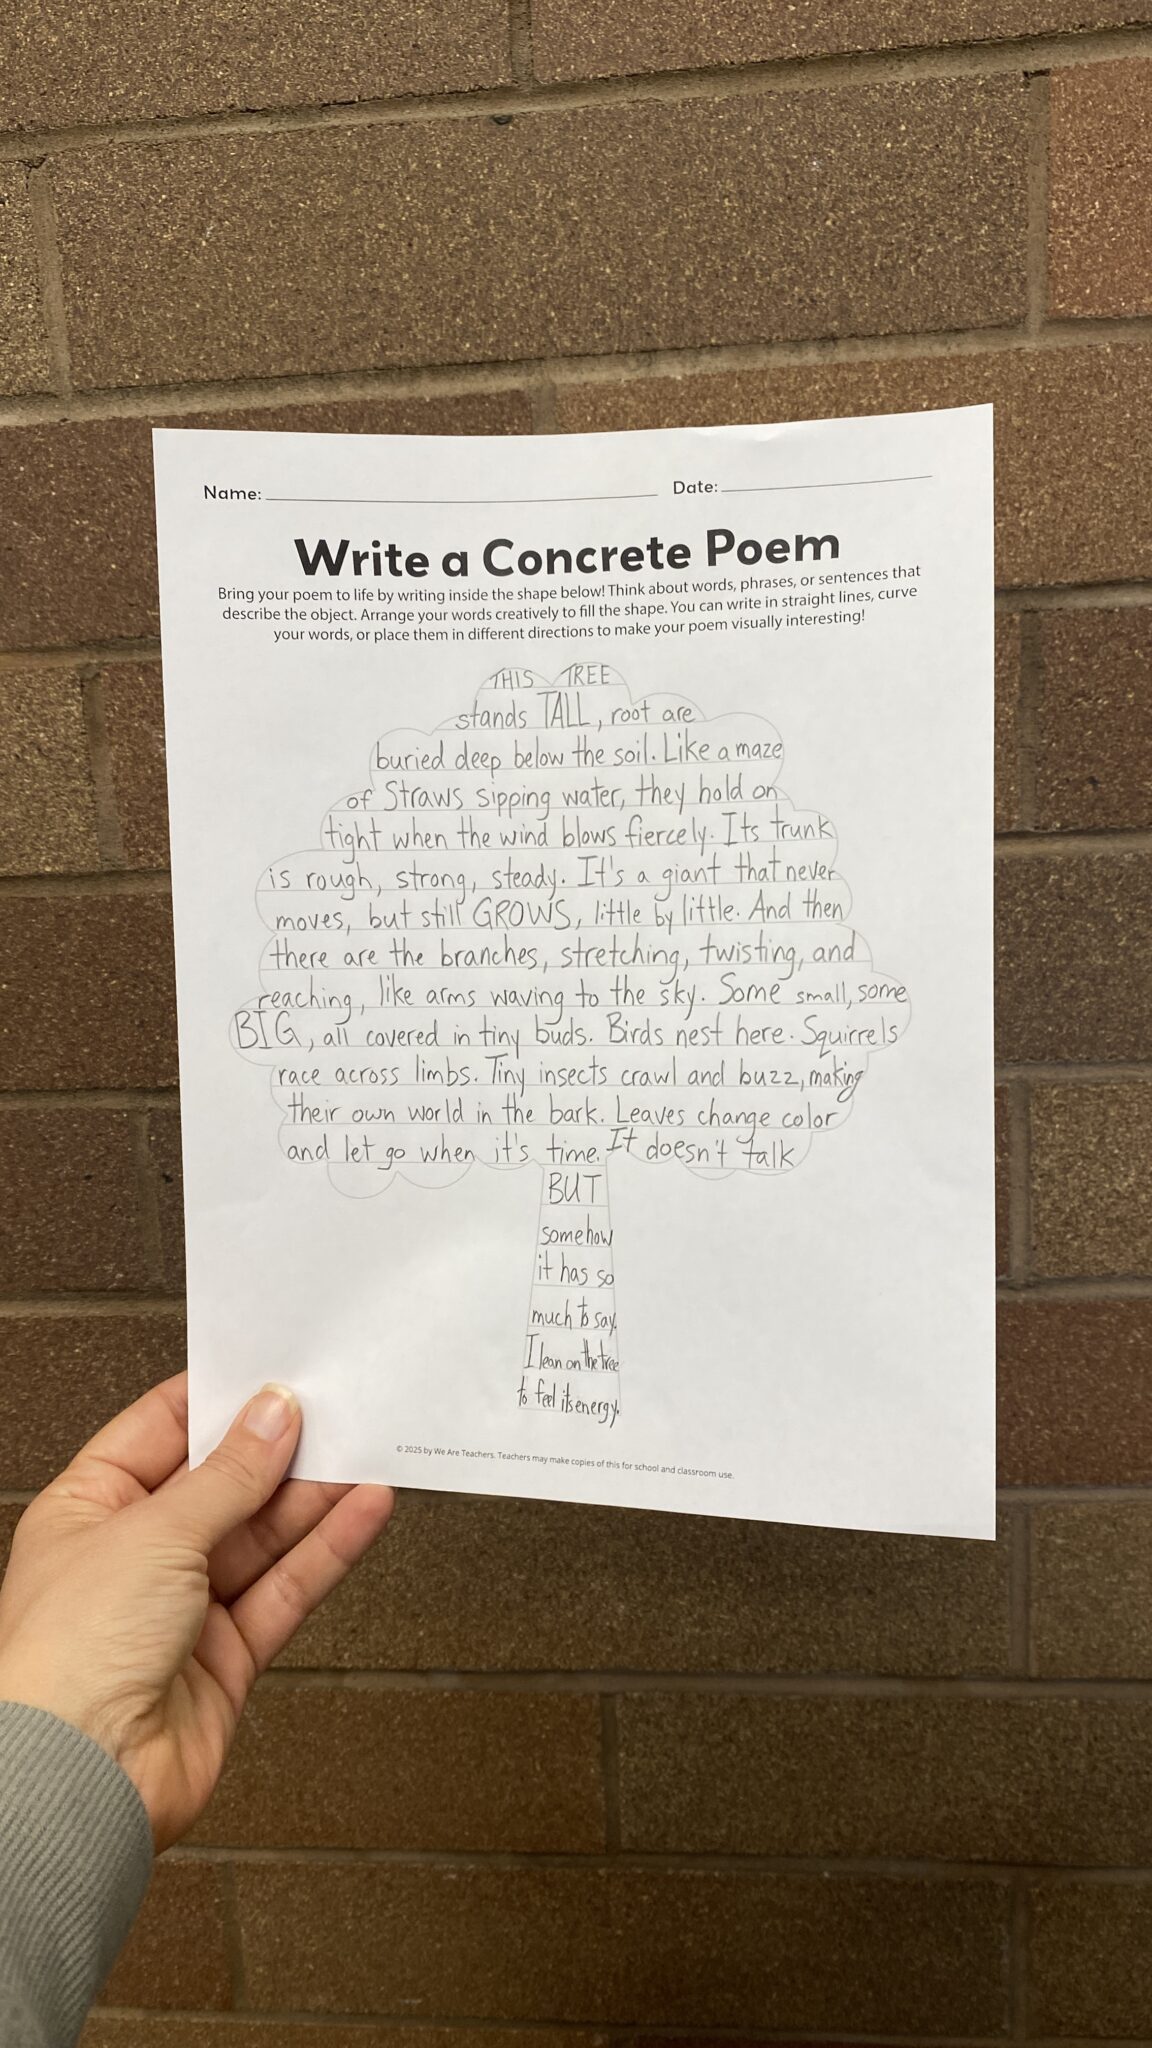 Name: Date:
Write a Concrete Poem
Bring your poem to life by writing inside the shape below! Think about words, phrases, or sentences that
describe the object. Arrange your words creatively to fill the shape. You can write in straight lines, curve
your words, or place them in different directions to make your poem visually interesting!
THIS TREE
stands TALL, root are
buried deep below the soil. Like a maze
of Straws sipping water, they hold on
tight when the wind blows fiercely. Its trunk
is rough, strong, steady. It's a giant that never
moves, but still GROWS, little by little. And then
there are the branches, stretching, twisting, and
reaching, like arms waving to the sky. Some small, some
BIG, all covered in tiny buds. Birds nest here. Squirrels
race across limbs. Tiny insects crawl and buzz, making
their own world in the bark. Leaves change color
and let go when it's time. It doesn't talk
BUT
somehow
it has so
much to say.
I lean on the tree
to feel its energy.
© 2025 by We Are Teachers. Teachers may make copies of this for school and classroom use.